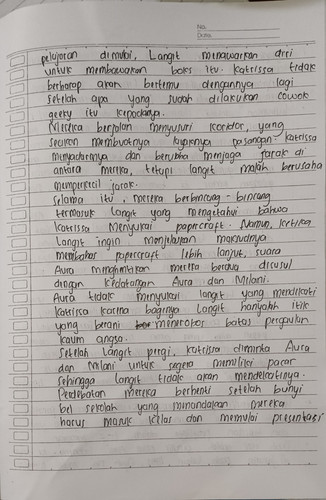 No.
Date.
pelajaran dimulai, Langit menawarkan diri
untuk membawakan boks itu. Katrissa tidak
berharap akan bertemu dengannya lagi
setelah apa yang sudah dilakukan cowok
geeky itu kepadanya.
Mereka berjalan menyusuri koridor, yang
seakan membuatnya layaknya pasangan. Katrissa
menyadarinya dan berusaha menjaga jarak di
antara mereka, tetapi langit malah berusaha
memperkecil jarak.
Selama itu, mereka berbincang-bincang
termasuk Langit yang mengetahui bahwa
Katrissa Menyukai papercraft. Namun, ketika
Langit ingin menjelaskan maksudnya
membahas papercraft lebih lanjut, suara
Aura menghentikan mereka berdua disusul
dengan kedatangan Aura dan Milani.
Aura tidak menyukai langit yang mendekati
Katrissa karena baginya Langit hanyalah itik
yang berani menerobos batas pergaulan
kaum angsa.
Setelah Langit pergi, Katrissa diminta Aura
dan Milani untuk segera memiliki pacar
sehingga Langit tidak akan mendekatinya.
Perdebatan mereka berhenti setelah bunyi
bel sekolah yang menandakan mereka
harus masuk kelas dan memulai presentasi